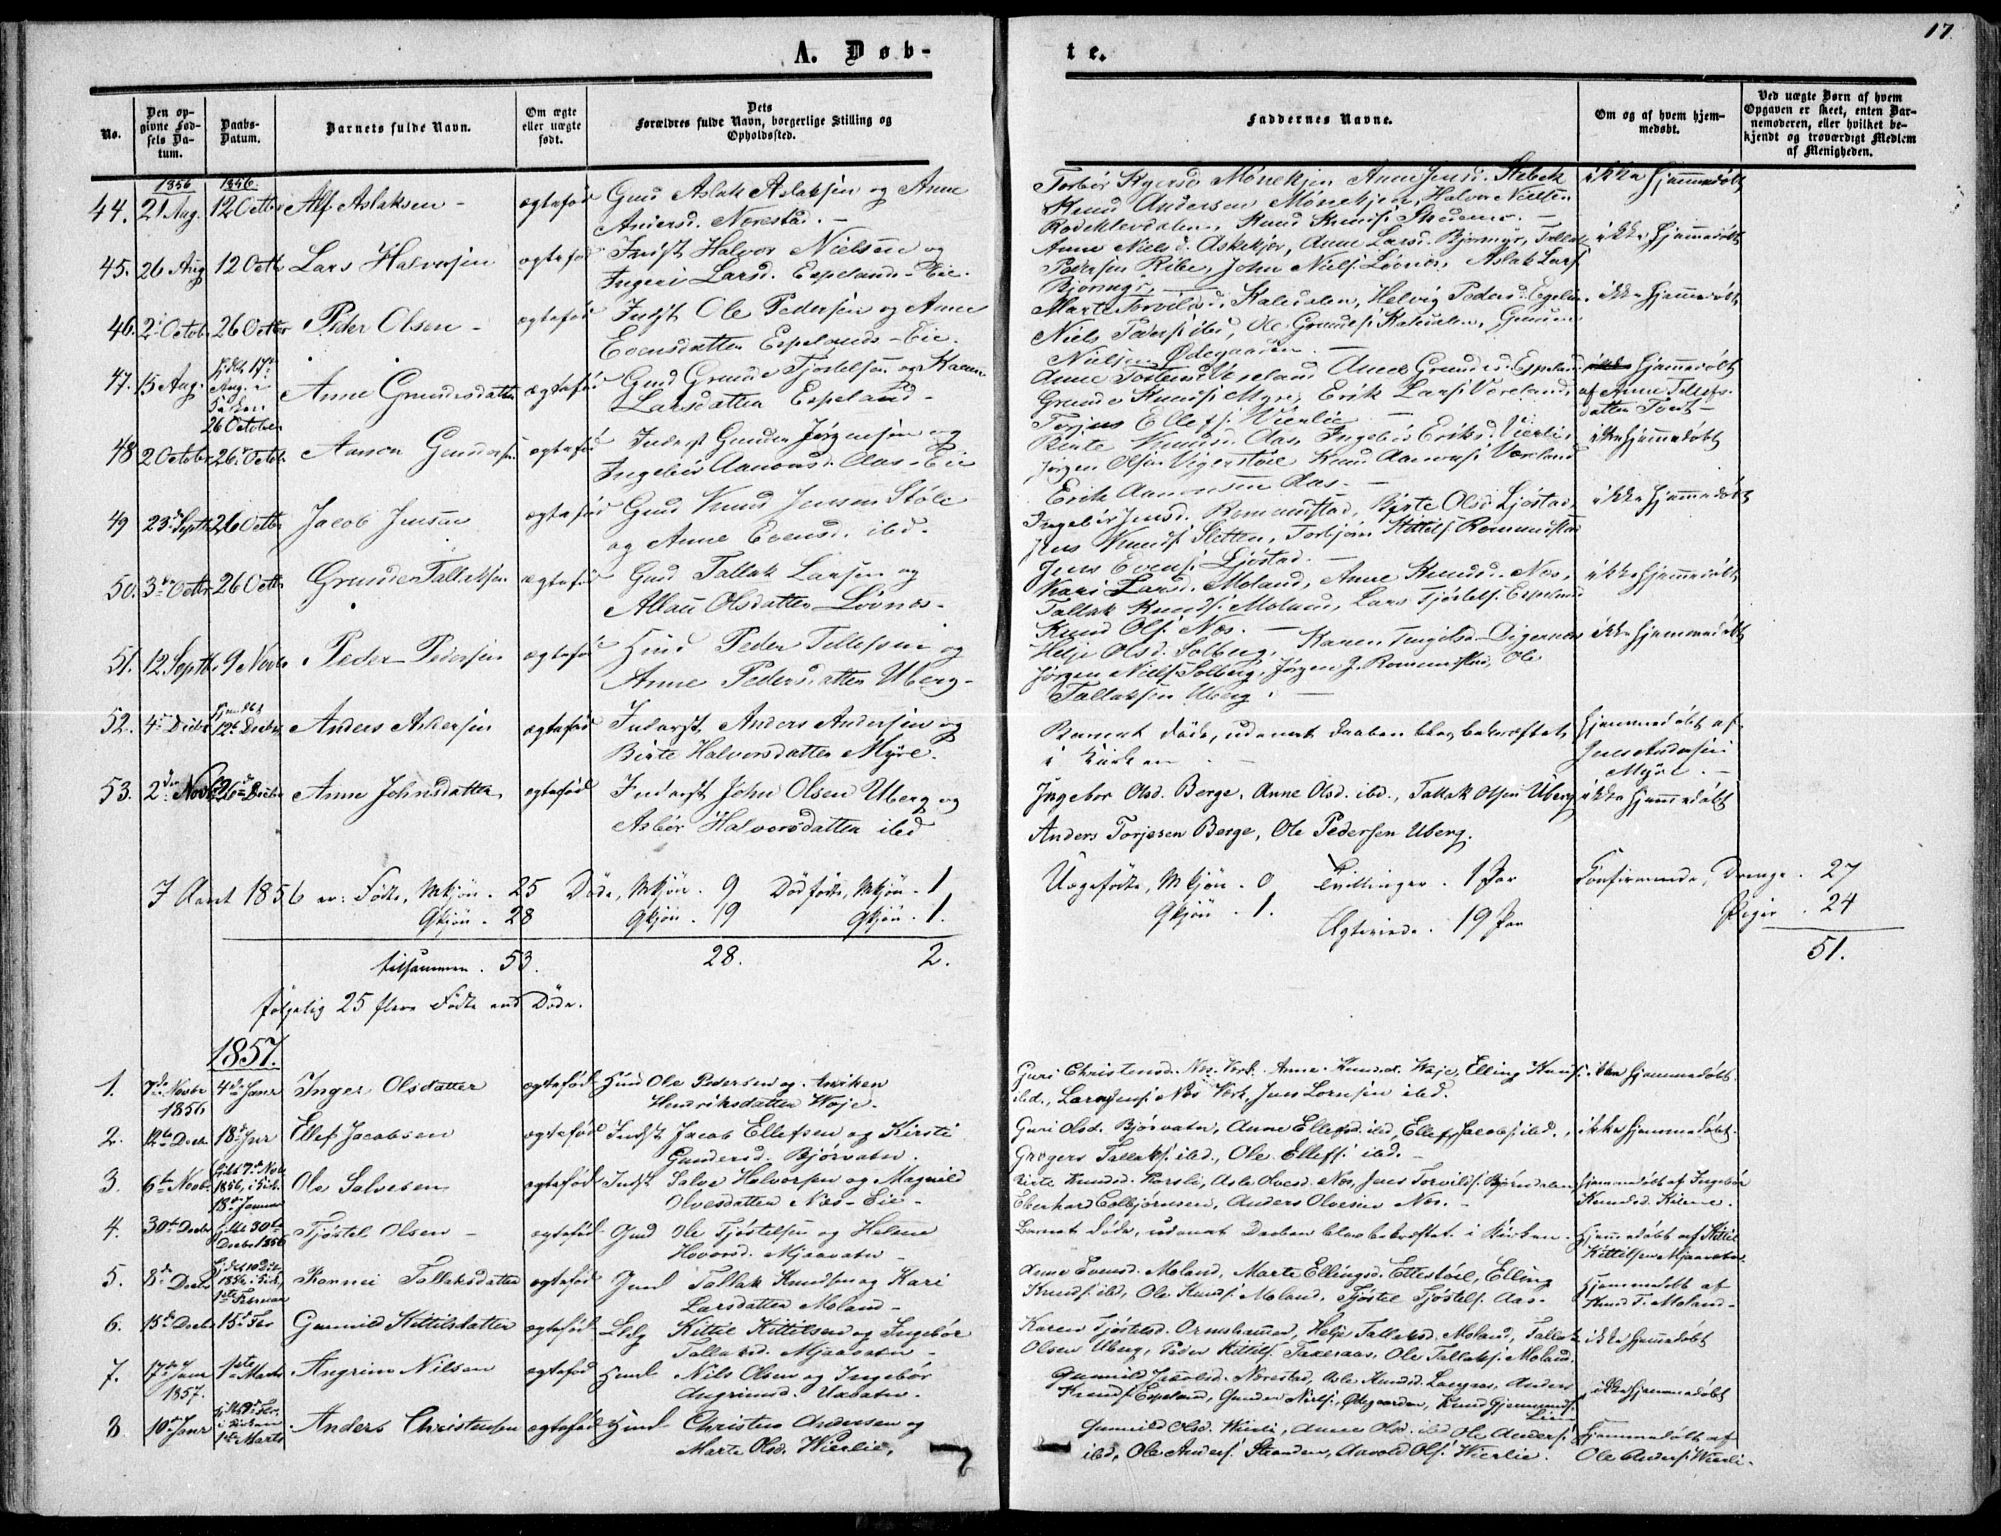 17.
A. Døb-
te.
No.
Den op-
givne Fød-
sels Da-
tum.
Daabs-
Datum.
Barnets fulde Navn.
Om ægte
eller uægte
født.
Dets
Forældres fulde Navn, borgerlige Stilling og
Opholdssted.
Faddernes Navne.
Om og af hvem hjem-
medøbt.
Ved uægte Børn af hvem
Opgaven er skeet, enten Bar-
nemoderen, eller hvilket be-
kjendt og troværdigt Medlem
af Menigheden.
1856 1856.
44. 21 Aug. 12 Octbr Alf Aslaksen - ægtefød Gmd Aslak Aslaksen og Anne
Andersd. Norestad. -
Anne Jensd.
Knud Andersen Mønekjen, Halvor Nielsen
Knud Knuds.
ikke hjemmedøbt
45. 26 Aug 12 Octbr Lars Halvorsen ægtefød Indst Halvor Nielsen og
Ingeri Larsd. Espelands-Eie.
Anne Nielsd. Askekjer, Anne Larsd. Bjørmyr, Tallak
Pedersen Ribe, John Niels. Løvnes, Aslak Lars.
Bjørmyr. -
ikke hjemmedøbt
46. 2 Octob 26 Octbr Peder Olsen - ægtefød Indst Ole Pedersen og Anne
Evensdatter Espelands-Eie.
Marte Torvildsd. Kateraslen, Helvig Pedersd. Espelan.
Niels Peders. ibd, Ole Grunds.
Nielsen Ødegaarden -
ikke hjemmedøbt
47. 15 Aug. hjdbt 17
Aug. i
Kirken
26 October
Anne Grundesdatter ægtefød Gmd Grunde Tjostelsen og Karen
Larsdatter Espeland-
Anne Tostensd. Voreland Anne Grundesd. Espeland
Grunde Knuds. Myre, Erik Lars. Voreland,
Torjus Ellefs. Vierlie -
hjemmedøbt
af Anne Tellefs-
datter Tvet-
48 2 October 26 Octob. Aanon Gunders. ægtefød Inderst Gunder Jørgensen og
Ingebor Aanonsd. Aas-Eie
Birte Knudsd. Aas, Ingebor Eriksd. Vierlie,
Jørgen Olsen Vigerstøil Knud Aanons. Voreland
Erik Aanonsen Aas. -
ikke hjemmedøbt
49 23 Septb 26 Octbr Jacob Jensen ægtefød Gmd Knud Jensen Støle
og Anne Evensd. ibd.
Ingebor Jensd. Rommundstad, Birte Olsd Ljøstad,
Jens Knuds. Sletten, Torbjørn Kittels. Rommundstad
Jens Evens. Ljøstad. -
ikke hjemmedøbt
50. 3 Octbr 26 Octbr Grunde Tallaksen ægtefød Gmd Tallak Larsen og
Allau Olsdatter Løvnes.
Kari Larsd. Moland, Anne Knudsd. Nes,
Tallak Knuds. Moland, Lars Tjøstels. Espeland
Knud Ols. Nes. -
ikke hjemmedøbt
51. 12 Septb 9 Novbr Peder Pedersen ægtefød Hmd Peder Tellefsen og
Anne Pedersdatter Uberg-
Helje Olsd. Solberg, Karen Digernes
Jørgen Niels. Solberg, Jørgen J. Rommundstad, Ole
Tallaksen Uberg. -
ikke hjemmedøbt
52. 4 Decbr 12 Decbr Anders Andersen ægtefød Inderst, Anders Andersen og
Birte Halvorsdatter Myre.
Barnet døde, uden at Daaben blev bekræftet
i Kirken -
hjemmedøbt af
Jens Andersen
Myre. -
53. 2 Novb 26 Decbr Anne Johnsdatter, ægtefød Inderst John Olsen Uberg og
Asbør Halvorsdatter ibd
Ingebor Olsd. Berge, Anne Olsd. ibd., Tallak Olsen Uberg
Anders Torjesen Berge, Ole Pedersen Uberg.
ikke hjemmedøbt
I Aaret 1856 er: Fødte, Mkjøn . 25 Døde, Mkjøn . 9 Dødfødte, Mkjøn . 1
Qkjøn . 28 Qkjøn . 19 Qkjøn . 1.
tilsammen . 53. 28. 2.
følgelig 25 flere Fødte end Døde.
Uægtefødte, Mkjøn . 0 Tvillinger . 1 Par Confirmerede, Drenge . 27
Qkjøn . 1. Ægteviede . 19 Par Piger . 24
51.
1857.
1. 7 Novbr
1856 4 Janr Inger Olsdatter ægtefød Hmd Ole Pedersen og Aniken
Henriksdatter Waje.
Guri Christensd. Nes Verk, Anne Knudsd. Waje, Elling Knuds.
ibd., Lars Jens. Nes Verk, Jens Lornsen ibd.
ikke hjemmedøbt.
2. 12 Decbr 18 Janr Ellef Jacobsen ægtefød Indst Jacob Ellefsen og Kirsti
Gundersd. Bjorvatn.
Guri Olsd. Bjorvatn, Anne Ellefsd. ibd, Ellef Jacobs. ibd.,
Gregers Tallaks. ibd., Ole Ellefs. ibd. -
ikke hjemmedøbt.
3. 6 Novbr. hjdbt 7 Nov.
1856, i Kirk.
18 Januar
Ole Salvesen ægtefød Indst Salve Halvorsen og Magnild
Olvesdatter Nes-Eie-
Birte Knudsd. Aasle Olvesd. Nes, Jens Torvilds. Bjørndalen,
Eberhard Colbjørnsen, Anders Olvesen Nes. -
hjemmedøbt af Ingebor
Knudsd.
4. 30 Decbr hjdbt 30
Decbr 1856
Tjøstel Olsen - ægtefød Gmd Ole Tjøstelsen og Helene
Hovorsd. Mjaavatn -
Barnet døde, uden at Daaben blev bekræftet i Kirken.
hjemmedøbt af Kittil
Kittilsen Mjaavatn
5. 8 Decbr hjdbt 10 Dcbr.
1856, i Kirk,
1ste Februar
Ronnei Tallaksdatter ægtefød Gmd Tallak Knudsen og Kari
Larsdatter Moland-
Anne Evensd. Moland, Marte Ellingsd. Ettestøl, Elling
Knuds. ibd, Ole Knuds. Moland, Tjøstel Tjøstels. Aas-
hjemmedøbt af
Knud T. Moland-
6. 15 Decbr 15 Febr Gunnild Kittilsdatter ægtefød Kittil Kittilsen og Ingebor
Tallaksd. Mjaavatn -
Karen Tjøstelsd. Ormshammer, Helje Tallaksd. Moland, Tallak
Olsen Uberg, Peder Kittils. Taxeraas, Ole Tallaks. Moland.
ikke hjemmedøbt
7. 17 Janr
1857. 1ste Marts Angrim Nilsen ægtefød Hmd Nils Olsen og Ingebor
Angrimsd. Uxvatn.
Gunnild Jacobsd. Norestad, Asle Knudsd. Langaas, Anders
Knuds. Espeland, Gunder Niels. Ødegaarden, Knud Gjermunds.
Lien
ikke hjemmedøbt
8. 10 Janr hjdbt Jan.,
i Kirken
1ste Marts
Anders Christensen ægtefød Hmd Christen Andersen og
Marte Olsd. Wierlie,
Gunnild Olsd. Wierli, Anne Olsd. ibd Ole Anders.
ibd, Ole Anders. Stranden, Aavold Ols. Wierlie.
hjemmedøbt af
Ole Anders. Wierli-